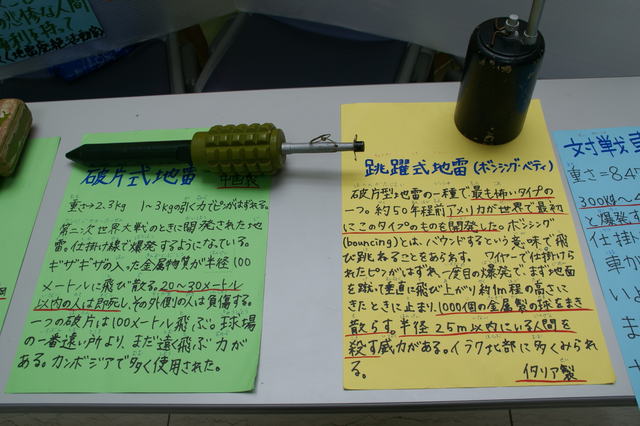 悲惨な人間
権利を持って
破片式地雷
中国製
重さ→2.3kg 1~3kgの引く力でピンがはずれる。
第二次世界大戦のときに開発された地
雷。仕掛け線で爆発するようになっている。
ギザギザの入った金属物質が半径100
メートルに飛び散る。20~30メートル
以内の人は即死し、その外側の人は負傷する。
一つの破片は100メートル飛ぶ。球場
の一番遠い所より、まだ遠く飛ぶ力が
ある。カンボジアで多く使用された。
跳躍式地雷(ボンジング・ベティ)
破片型地雷の一種で最も怖いタイプの
一つ。約50年程前アメリカが世界で最初
にこのタイプのものを開発した。ボンジング
(bouncing)とは、バウンドするという意味で飛
び跳ねることをあらわす。ワイヤーで仕掛けら
れたピンがはずれ、一度目の爆発で、まず地面
を蹴って垂直に飛び上がり約1m程の高さに
きたときに止まり、1000個の金属製の球をまき
散らす。半径25m以内にいる人間を
殺す威力がある。イラク北部に多くみられ
る。
イタリア製
対戦車
重さ=847
300kg~4
て爆発す
仕掛い
車がい
に